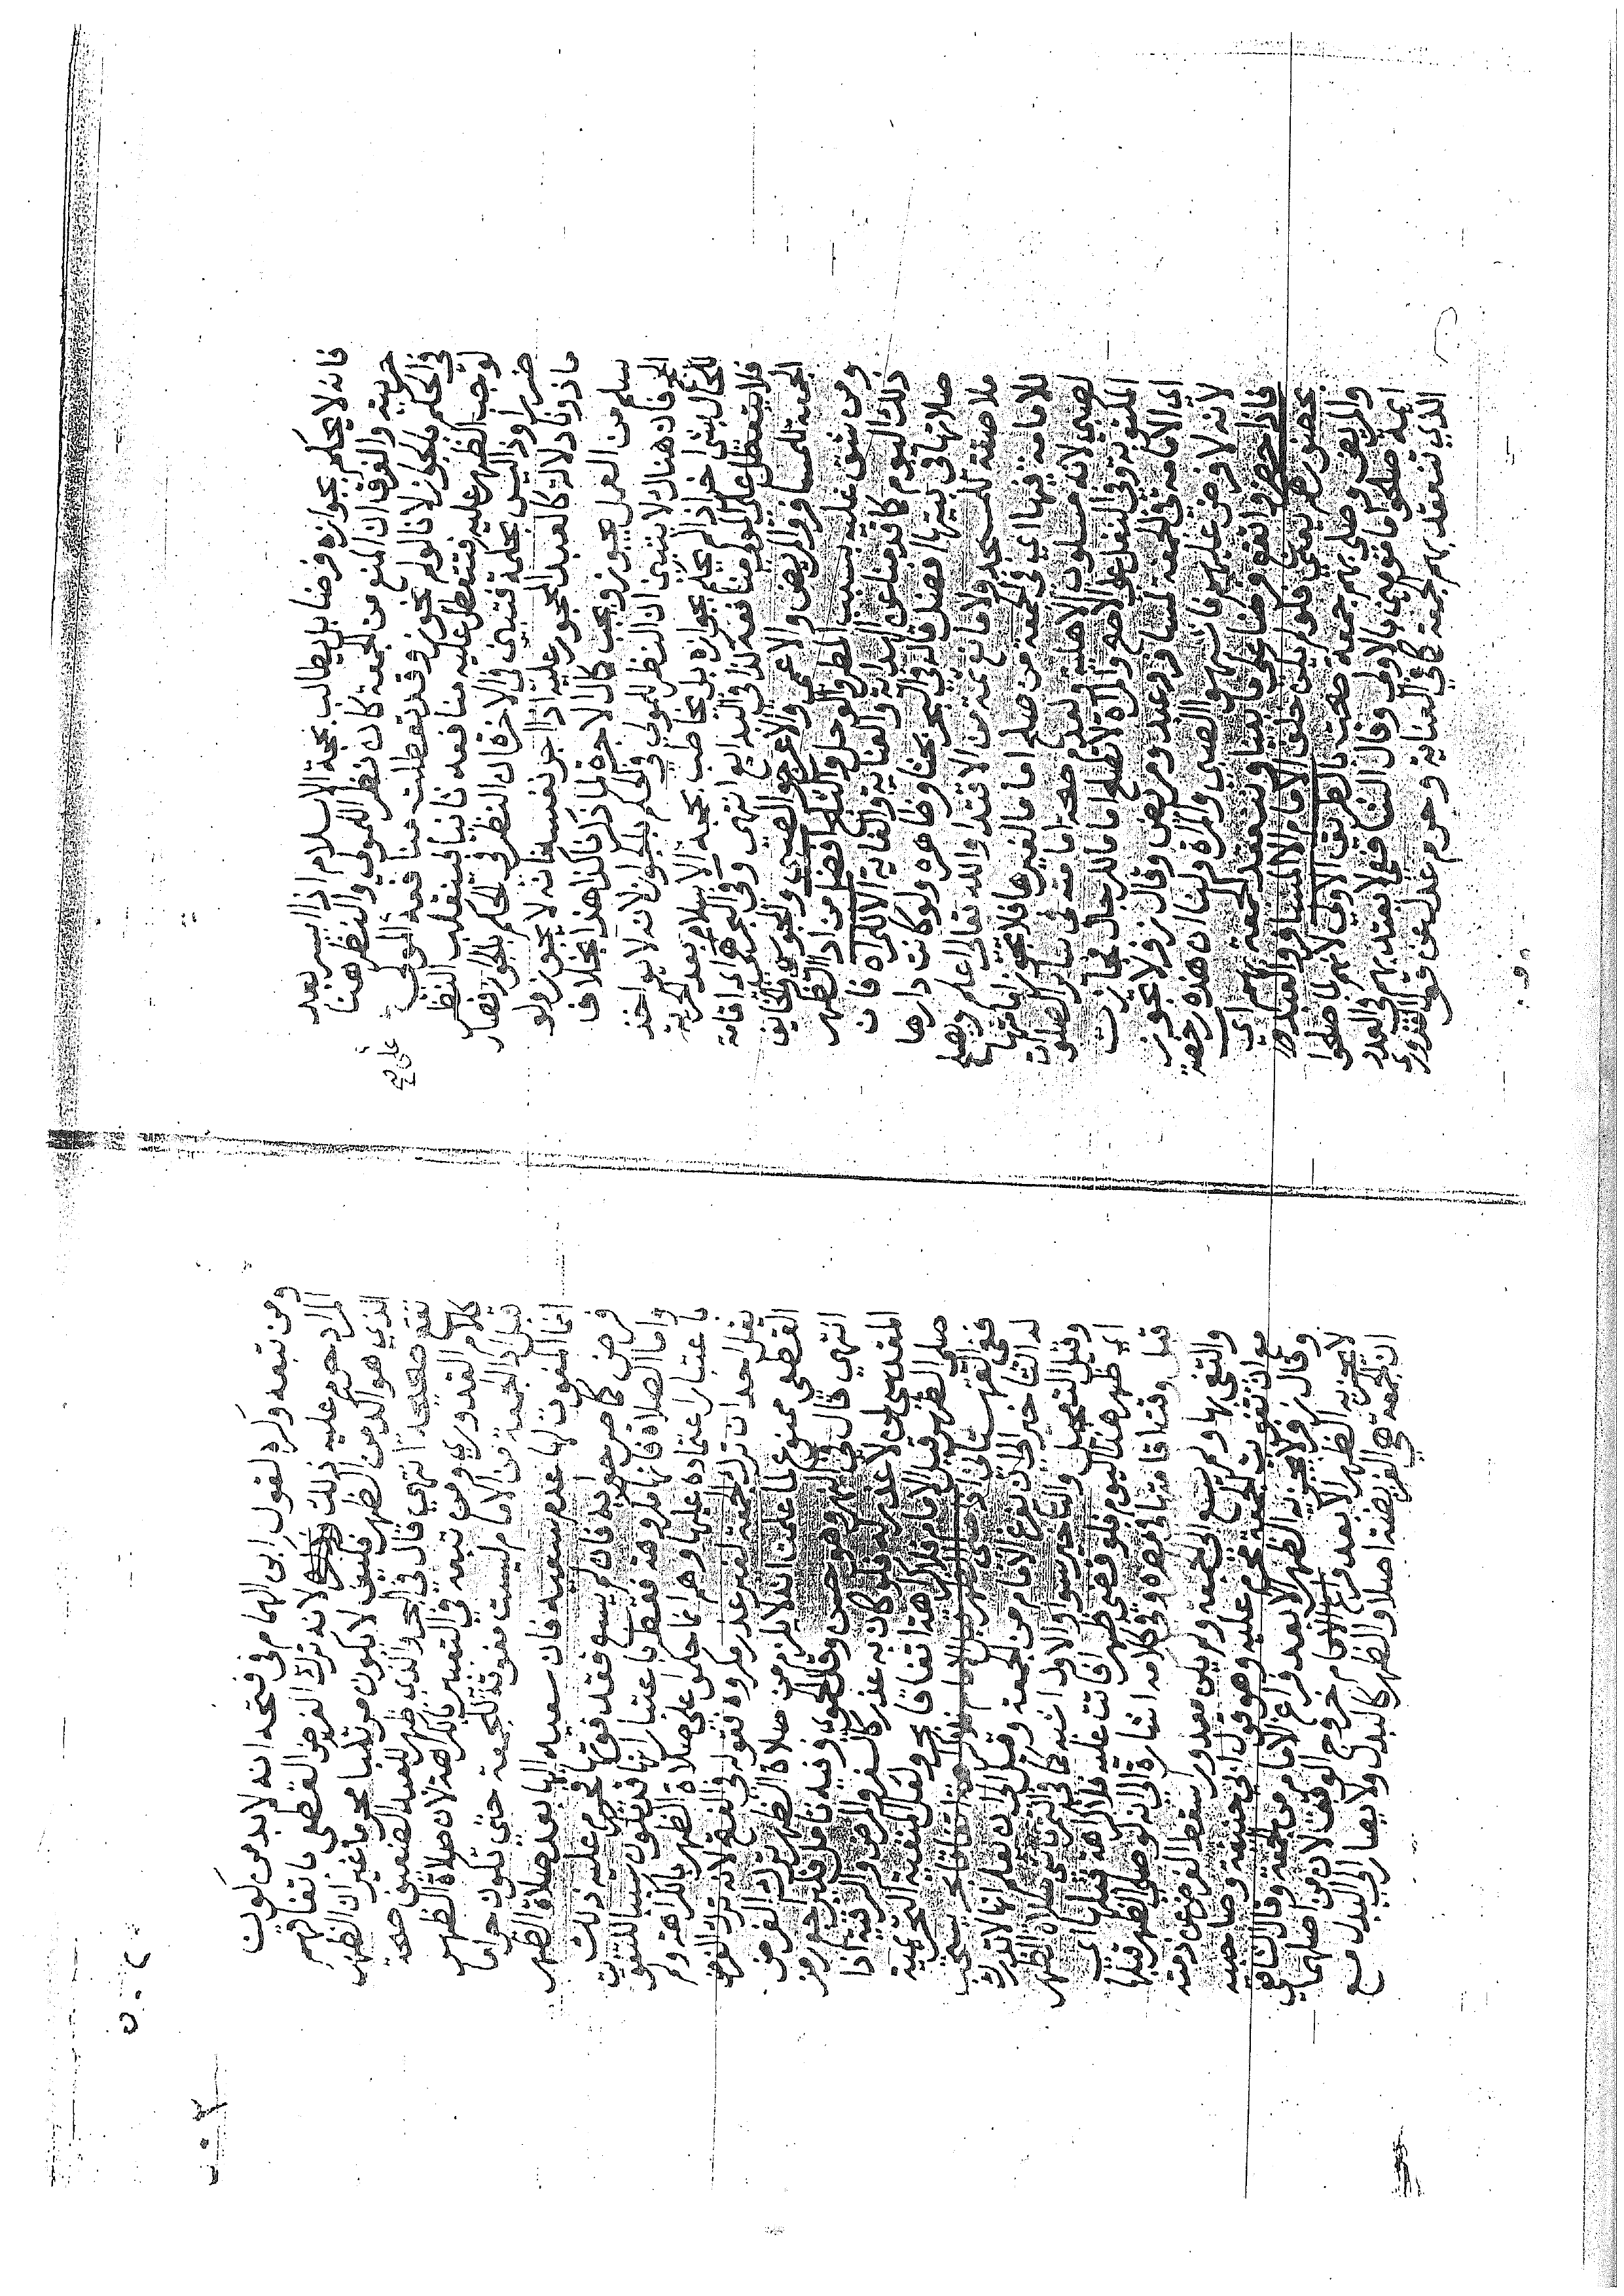 فانه لا يحكم بجوازه فرضا بل يطالب بحجة الاسلام اذا ايسر بعد
حريته والفرق ان المنع من الجمعة كان نظرا للمولى والنظر هنا
في الحكم بالجواز لانا لو لم نجوز وقد تعطلت منافعه على المولى
لوجب الظهر عليه فتتعطل عليه منافعه ثانيا فينقلب النظر
ضررا وذا ليس بحكمة فتبين في الاخرة ان النظر في الحكم بالجواز فصار
ماذونا دلالة كالعبد المحجور عليه اذا اجر نفسه فانه لا يجوز ولو
سلم من العمل يجوز ويجب كمال الاجرة لما ذكرنا كذا هذا بخلاف
الحج فان هناك لا يتبين ان النظر للمولى في الحكم بالجواز لانه لا يواخذ
للحال بشي اخر اذا لم يحكم بجوازه بل يخاطب بحجة الاسلام بعد الحرية
فلا يتعطل على المولى منافعه كذا في البدايع انتهى وفي البحر هل اقامة
الجمعة للمسافر والمريض والاعمى والاعرج والصبي والمحبوس والخايف
ومن شق عليه بسبب المطر والوحل والثلج افضل من اداء الظهر
ذلك اليوم كما قدمنا عن الهداية والعناية والغاية الا للمراة فان
صلاتها في بيتها افضل قاله في البحر بحثا وظاهره ولو كانت دارها
ملاصقة للمسجد ولا مانع ثمة من الاقتدا والله تعالى اعلم ويصلح
للامامة فيها اي في الجمعة من صلح اماما لغيرها فلا تجوز امامة
لصبي لانه مسلوب الاهلية ولعدم صحة امامته في سائر الصلوات
المكتوبة وفي النفل على الاصح والمراة لا تصلح اماما للرجال فجازت
اي الامامة في الجمعة لمسافر وعبد ومريض وقال زفر لا يجوز
لانه لا فرض عليهم فاشبهوا الصبي والمراة ولنا ان هذه رخصة
فاذا حضروا تقع فرضا على ما بينا وتنعقد الجمعة بهم اي
بحضورهم يعني فلو لم يكن خلف الامام الا المسافر والعبد
والمريض وصلى بهم جمعة صحت بالطريق الاولى لانهم لما صلحوا
ايمة صلحوا مامومين بالاولى وقال الشافعي لا يعتد بهم في العدد
الذي تنعقد بهم الجمعة كما في العناية وحرم عدل عن قول القدوري
ومن تبعه وكره لقول ابن الهمام في فتحه انه لا بد من كون
المراد حرم عليه ذلك لانه ترك الفرض القطعي باتفاقهم
الذي هو اكد من الظهر فكيف لا يكون مرتكبا محرما غير ان الظهر
تقع صحيحة انتهى قال في البحر والذي ظهر للعبد الضعيف صحة
كلام القدوري ومن تبعه في التعبير بالكراهة لان صلاة الظهر
قبل اداء الجمعة من الامام ليست مفوتة للجمعة حتى تكون حراما
انما المفوت لها عدم سعيه فان سعيه اليها بعد صلاة الظهر
فرض كما صرحوا به فان لم يسع فقد فوتها فحرم عليه ذلك
واما الصلاة فانها مكروهة فقط باعتبار انها قد تكون سببا للتفويت
باعتبار اعتماده عليها وهم انما حكموا على صلاة الظهر بالكراهة ولم
يقل احد ان ترك الجمعة لغير عذر مكروه بقوله في الفتح لانه ترك الفرض
القطعي ممنوع لما علمت انه لا يلزم من صلاة الظهر ترك الفرض
انتهى قال في النهر وهو حسن وقال الحموي وفيه تامل فليراجع ورمز
المقدسي لمن لا عذر له فلو كان به عذر كالسفر والمرض والرقية اذا
صلى الظهر قبل الامام فلا كراهة اتفاقا بحر ولعل كيفية التحريمية
له التاخير الى ان يفرغ الامام من الجمعة وقيل الى ان يعلم انها لا تدرك
وقيل التعجيل والتاخير سوا والاول اشبه كما في التمرتاشي صلاة الظهر
اي ظهر هذا اليوم فلو قضى ظهرا فائت عليه فلا كراهة قبلها اي
قبل وقت اقامتها في مصره وفي كلامه اشارة الى انه لو صلى الظهر قبلها
والتقى بها ولم يسع الى الجمعة ولم يكن بمعذور سقط الفرض عن ذمته
مع ان تفويت الجمعة محرم عليه وهو قول ابي حنيفة وصاحبيه
وقال زفر لا يجزيه الظهر الا بعد فراغ الامام من الجمعة وقال الشافعي
لا يجزيه الظهر الا بعد فراغ الامام خروج الوقت لان من اصلهما
ان الجمعة هي الفريضة اصلا والظهر كالبدل ولا يصار الى البدل مع